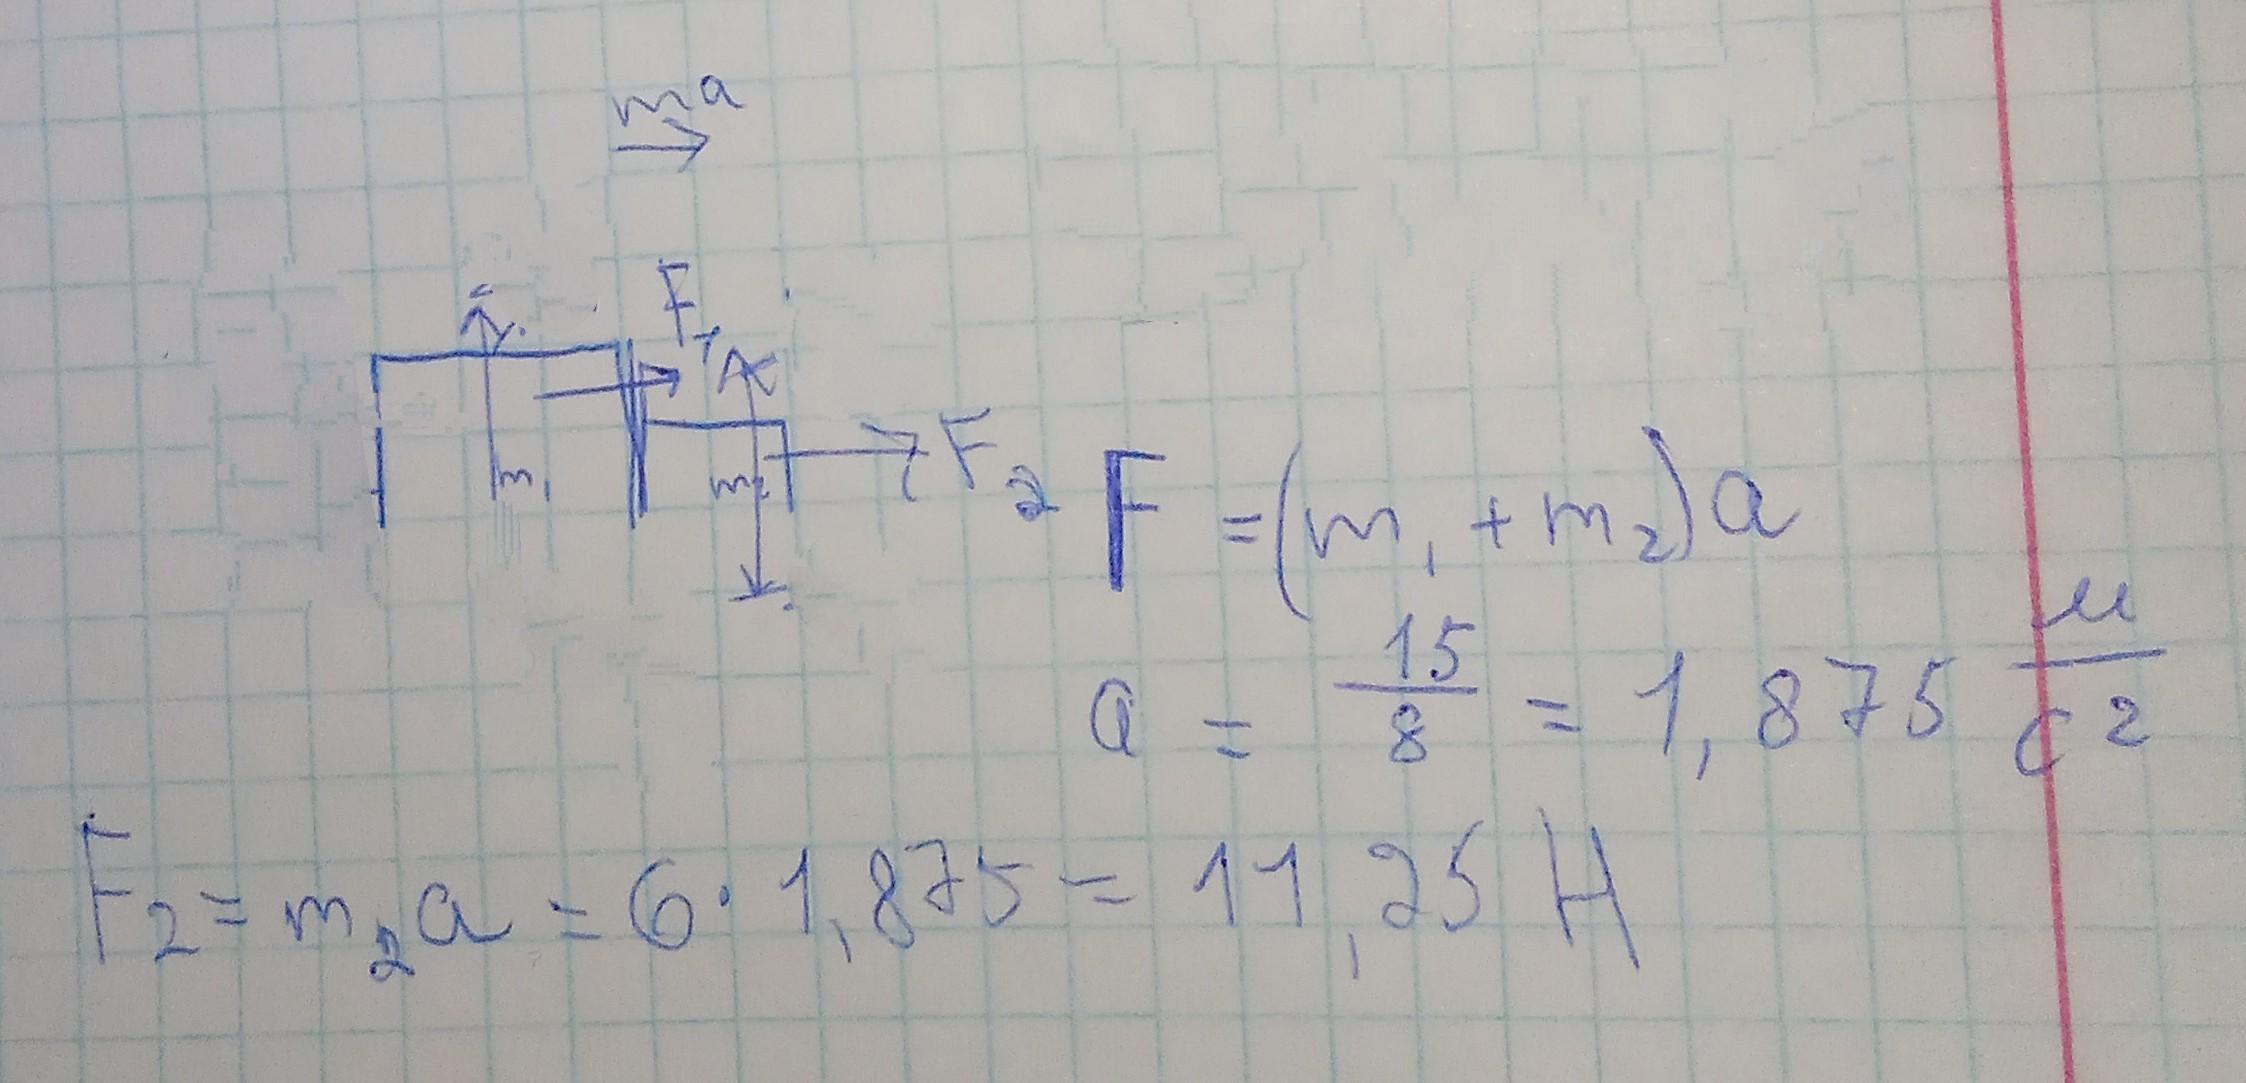 ma
F₁
m₁ m₂ F₂
F = (m₁ + m₂)a
a = 15/8 = 1,875 м/с²
F₂ = m₂a = 6·1,875 = 11,25 Н